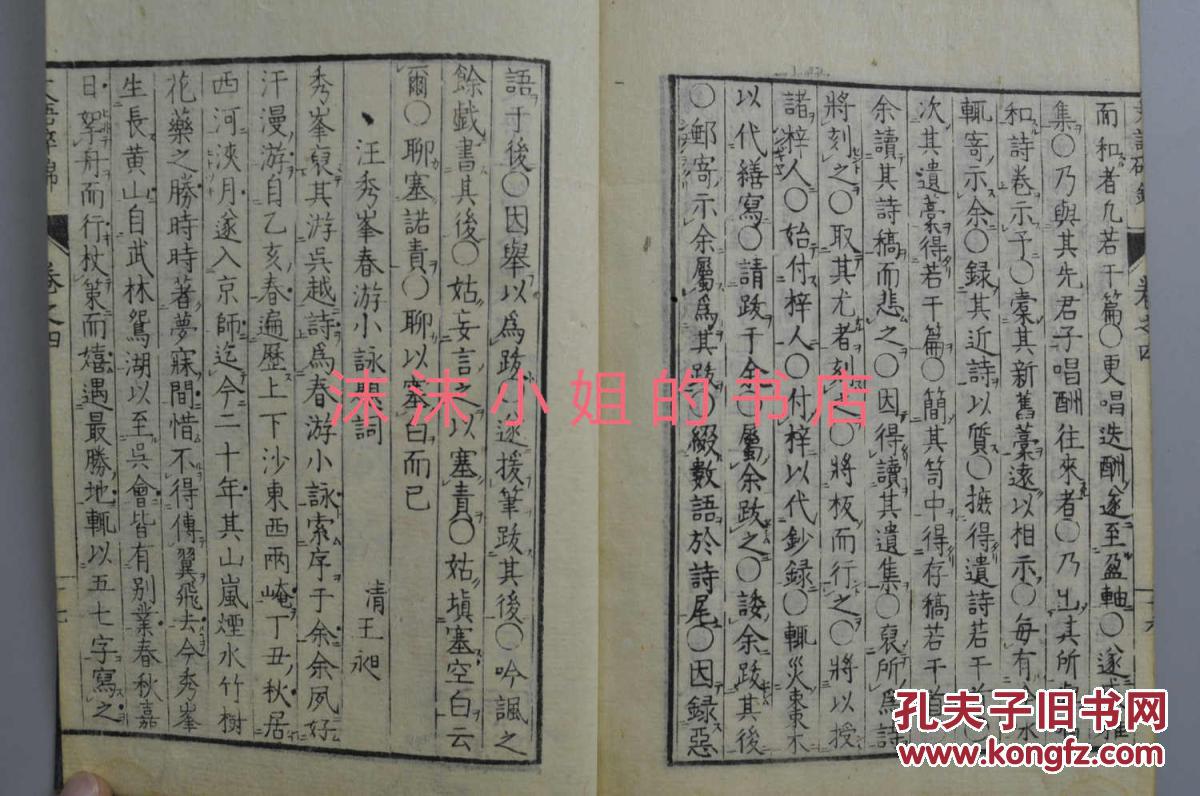 而和者九若干篇○更唱迭酬遂至盈軸○遂
集○乃與其先君子唱酬往來者○乃出其所
和詩卷示予○橐其新舊藁遠以相示○每有
輒寄示余○錄其近詩以質○摭得遺詩若干
次其遺藁得若干篇○簡其笥中得存稿若干首
余讀其詩稿而悲之○因得讀其遺集○裒所爲詩
將刻之○取其尤者刻○將板而行之○將以授
諸梓人○始付梓人○付梓以代鈔錄○輒災東棗不
以代繕寫○請跋于余○屬余跋之○諉余跋其後
○郵寄示余屬爲其跋○綴數語於詩尾○因錄惡
語于後○因舉以爲跋○遂援筆跋其後○吟諷之
餘戲書其後○姑妄言之以塞責○姑塡塞空白云
爾○聊塞諾責○聊以塞白而已
汪秀峯春游小詠題詞 淸王昶
秀峯裒其游吳越詩爲春游小詠索序于余余夙好
汗漫游自乙亥春遍歷上下沙東西兩崦丁丑秋居
西河浹月遂入京師迄今二十年其山嵐煙水竹樹
花藥之勝時時著夢寐間惜不得傳翼飛去今秀峯
生長黃山自武林鴛湖以至吳會皆有別業春秋嘉
日拏舟而行杖策而嬉遇最勝地輒以五七字寫之
卷之四
沫沫小姐的书店
孔夫子旧书网
www.kongfz.com